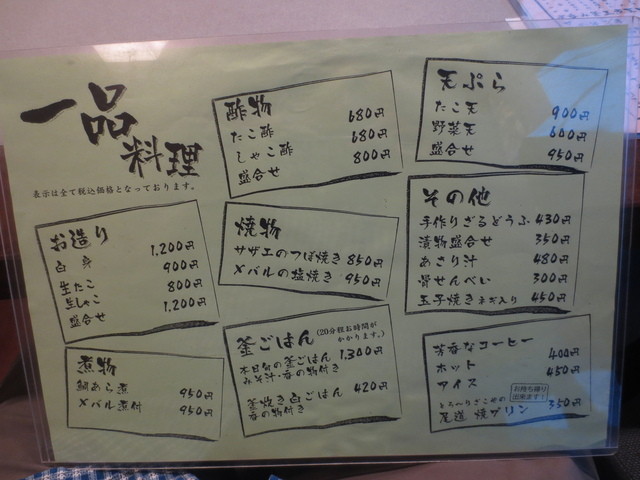 一品
料理
表示は全て税込価格となっております。
お造り
白身 1,200円
生たこ 900円
生しゃこ 800円
盛合せ 1,200円
煮物
鯛あら煮 950円
メバル煮付 950円
酢物
たこ酢 680円
しゃこ酢 680円
盛合せ 800円
焼物
サザエのつぼ焼き 850円
メバルの塩焼き 950円
釜ごはん (20分程お時間が
かかります。)
本日旬の釜ごはん 1,300円
みそ汁・香の物付き
釜炊き白ごはん 420円
香の物付き
天ぷら
たこ天 900円
野菜天 600円
盛合せ 950円
その他
手作りざるどうふ 430円
漬物盛合せ 350円
あさり汁 480円
骨せんべい 300円
玉子焼き ネギ入り 450円
芳香なコーヒー
ホット 400円
アイス 450円
お持ち帰り
出来ます!
とろ〜りざこやの
尾道 焼プリン 350円